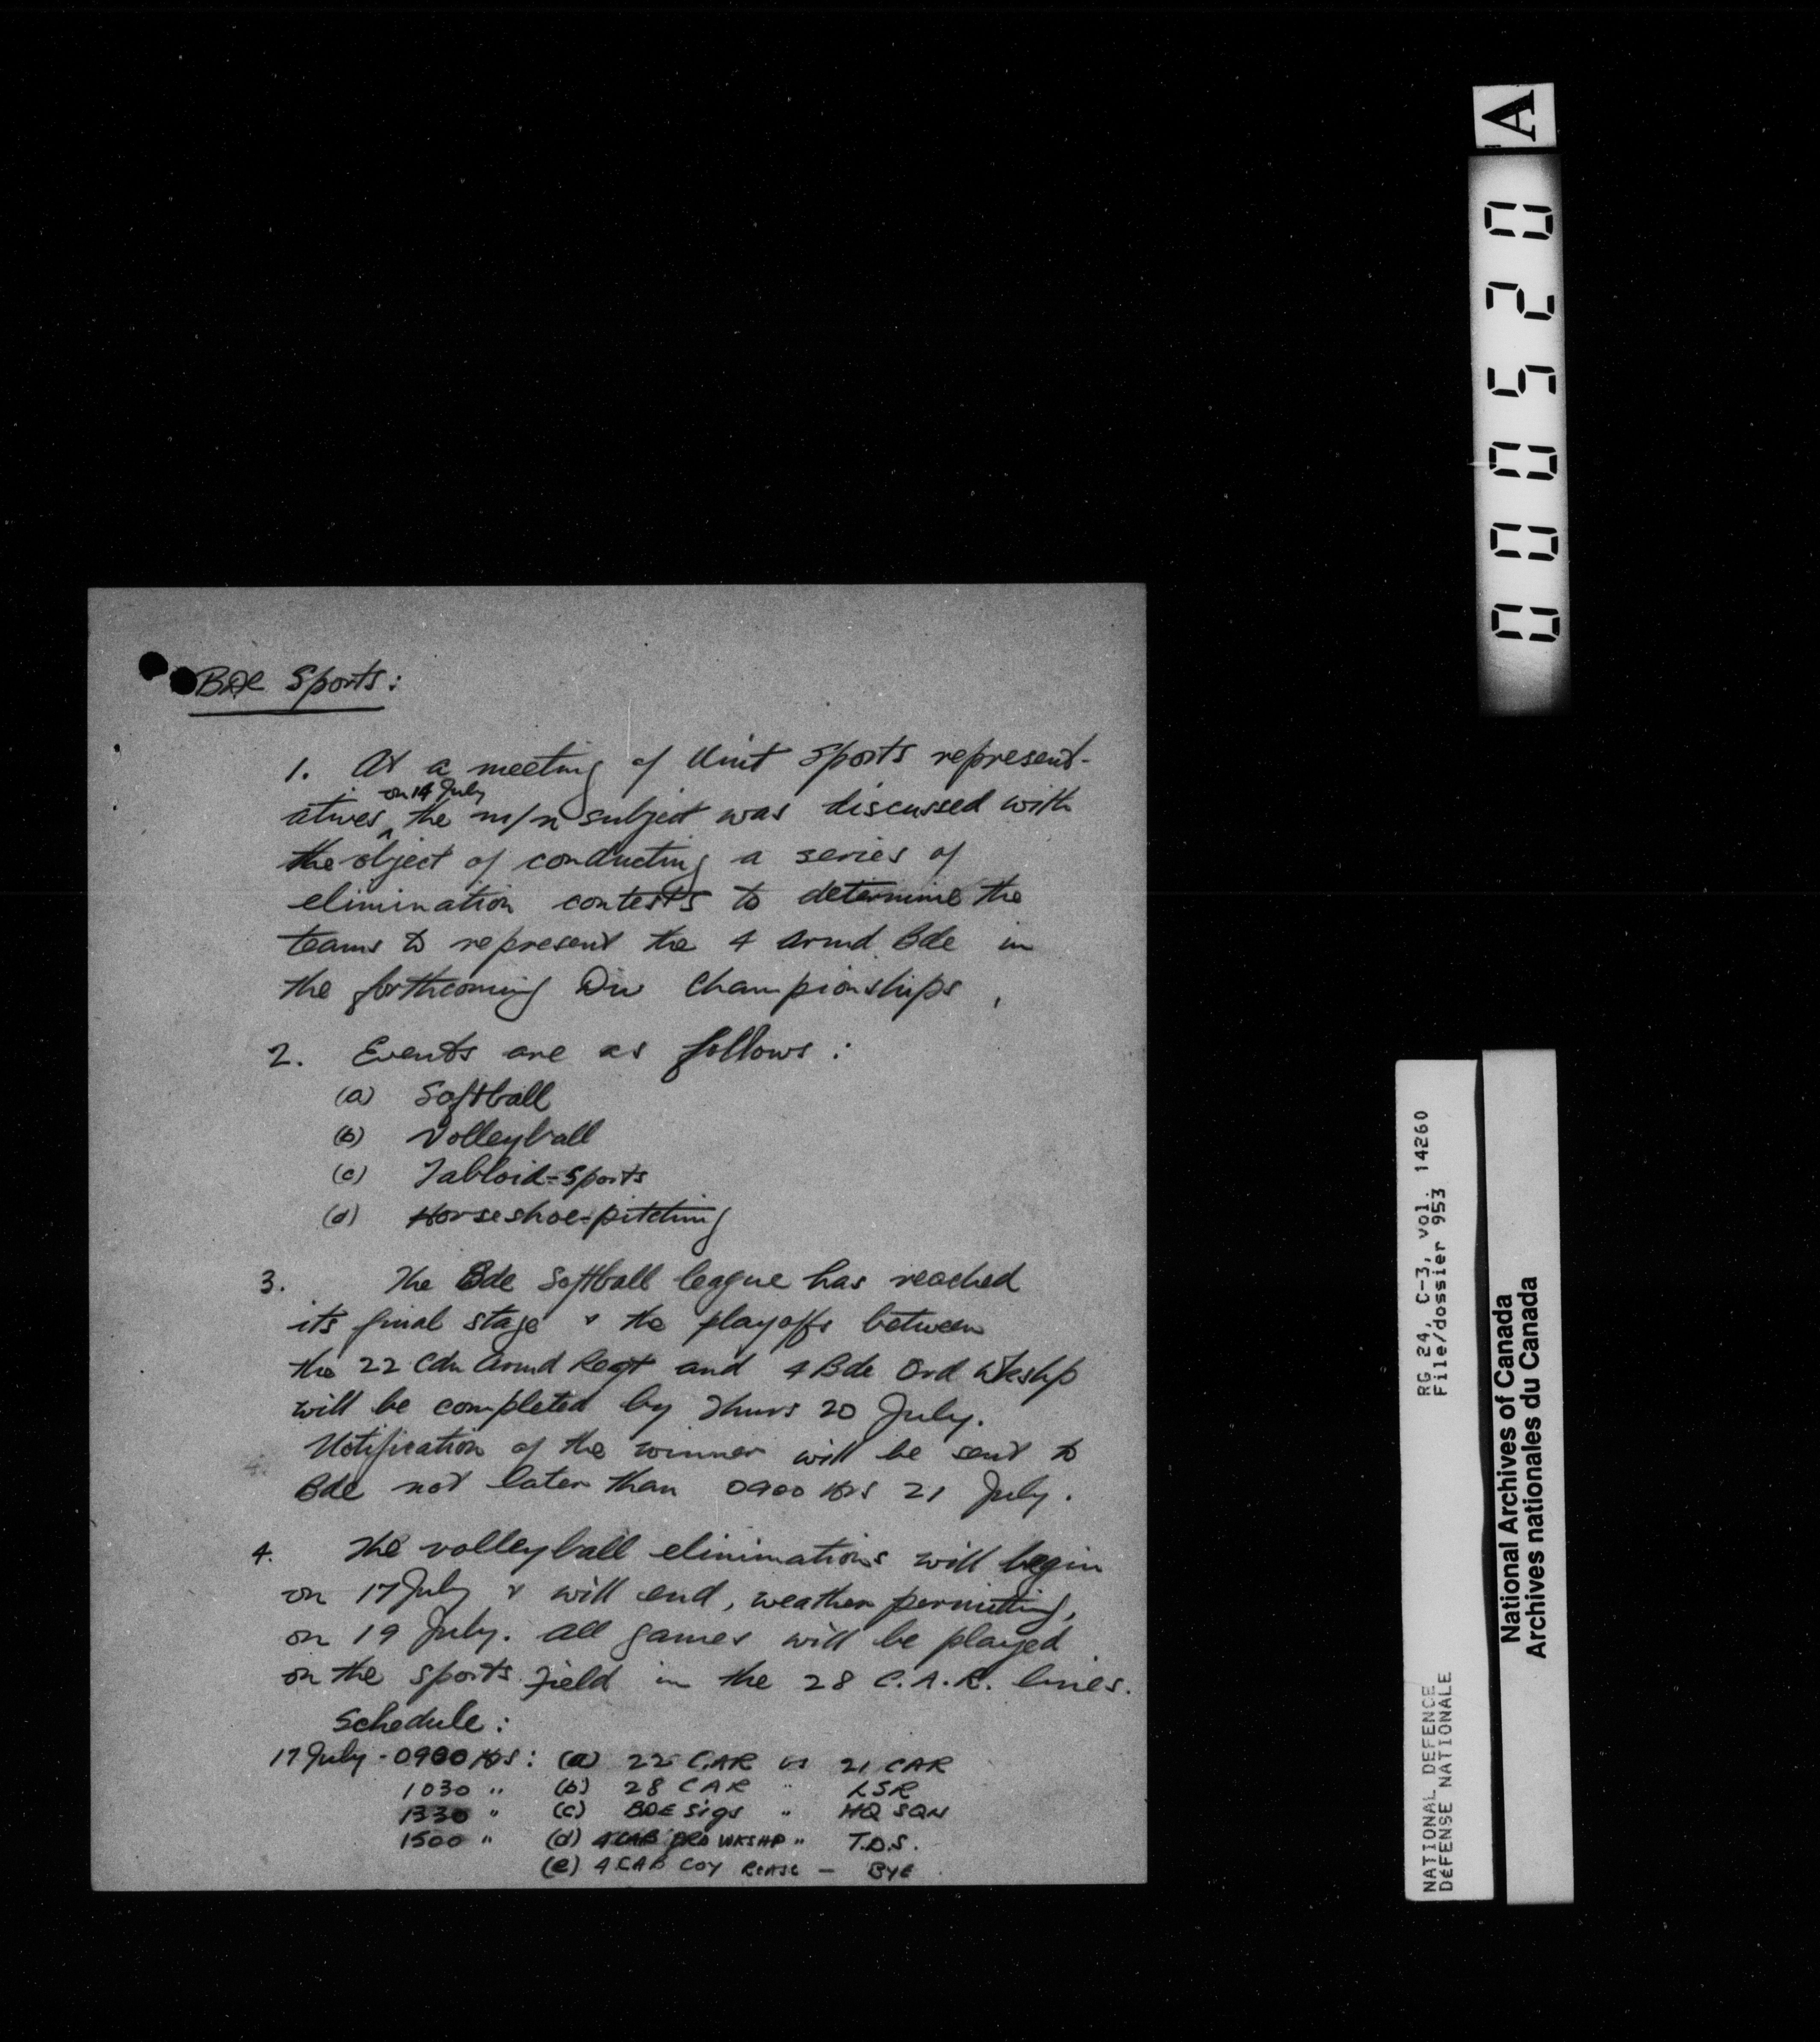 Bde Sports:
1. At a meeting of Unit Sports represent-
on 14 July
atives ^ the m/n subject was discussed with
the object of conducting a series of
elimination contests to determine the
teams to represent the 4 Armd Bde in
the forthcoming Div Championships.
2. Events are as follows:
(a) Softball
(b) Volleyball
(c) Tabloid-Sports
(d) Horseshoe-pitching
3. The Bde Softball league has reached
its final stage & the playoffs between
the 22 Cdn Armd Regt and 4 Bde Ord Wkshp
will be completed by Thurs 20 July.
Notification of the winner will be sent to
Bde not later than 0900 Hrs 21 July.
4. The volleyball eliminations will begin
on 17 July & will end, weather permitting,
on 19 July. All games will be played
on the sports field in the 28 C.A.R. lines.
Schedule:
17 July - 0900 Hrs: (a) 22 CAR vs 21 CAR
1030 " (b) 28 CAR " LSR
1330 " (c) BDE Sigs " HQ SQN
1500 " (d) 4 CAB WKSHP " T.D.S.
(e) 4 CAB COY — BYE
A
000520
RG 24, C-3, vol. 14260
File/dossier 953
NATIONAL DEFENCE
DÉFENSE NATIONALE
National Archives of Canada
Archives nationales du Canada